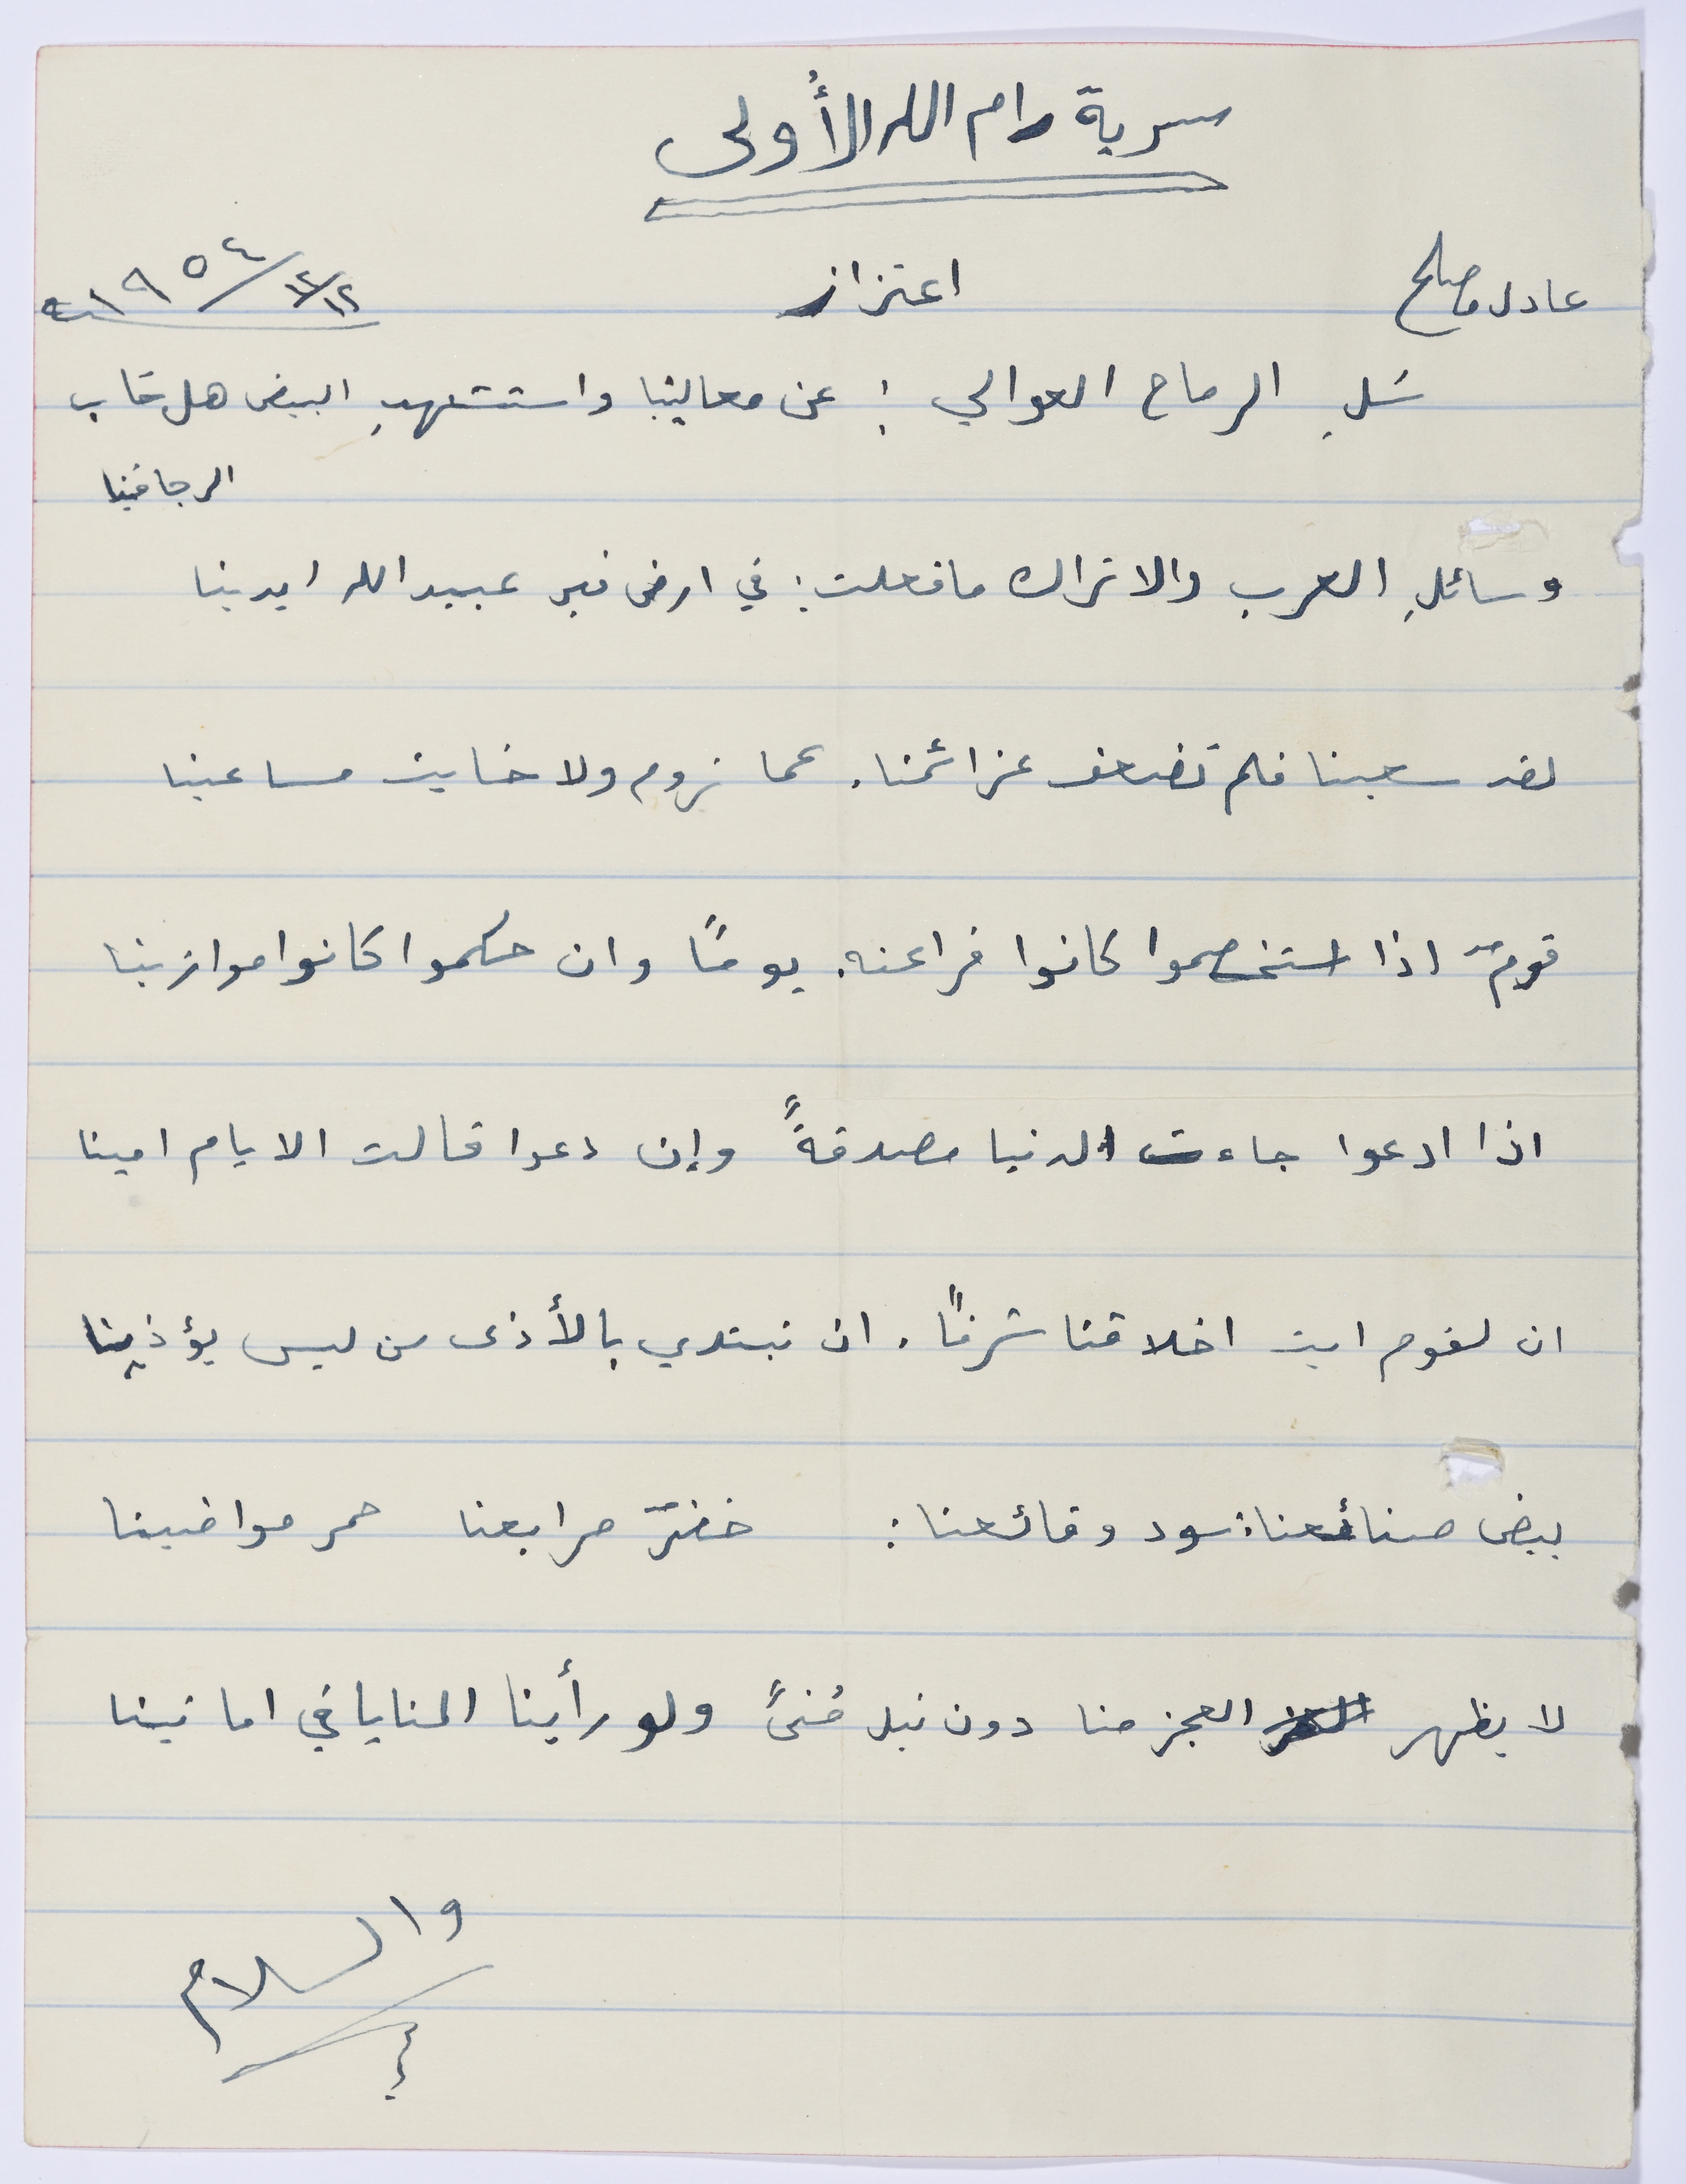 سرية رام الله الأولى
عادل مصلح
اعتزاز
١٢/١٢/١٩٥٤
سَلِ الرماح العوالي : عن معالينا واستشهدِ البيض هل خاب
الرجا فينا
وسائلِ العرب والاتراك ما فعلت : في ارض قبر عبيد الله ايدينا
لقد سعينا فلم تضعف عزائمنا . عما نروم ولا خابت مساعينا
قومٌ اذا استخصموا كانوا فراعنه . يومًا وان حكموا كانوا موازينا
اذا ادعوا جاءت الدنيا مصدقةً وإن دعوا قالت الايام امينا
ان لقوم ابت اخلاقنا شرفًا . ان نبتدي بالأذى من ليس يؤذينا
بيض صنائعنا : سود وقائعنا : خضرٌ مرابعنا حمر مواضينا
لا يظهر العجز منا دون نيل مُنىً ولو رأينا المنايا في امانينا
والسلام